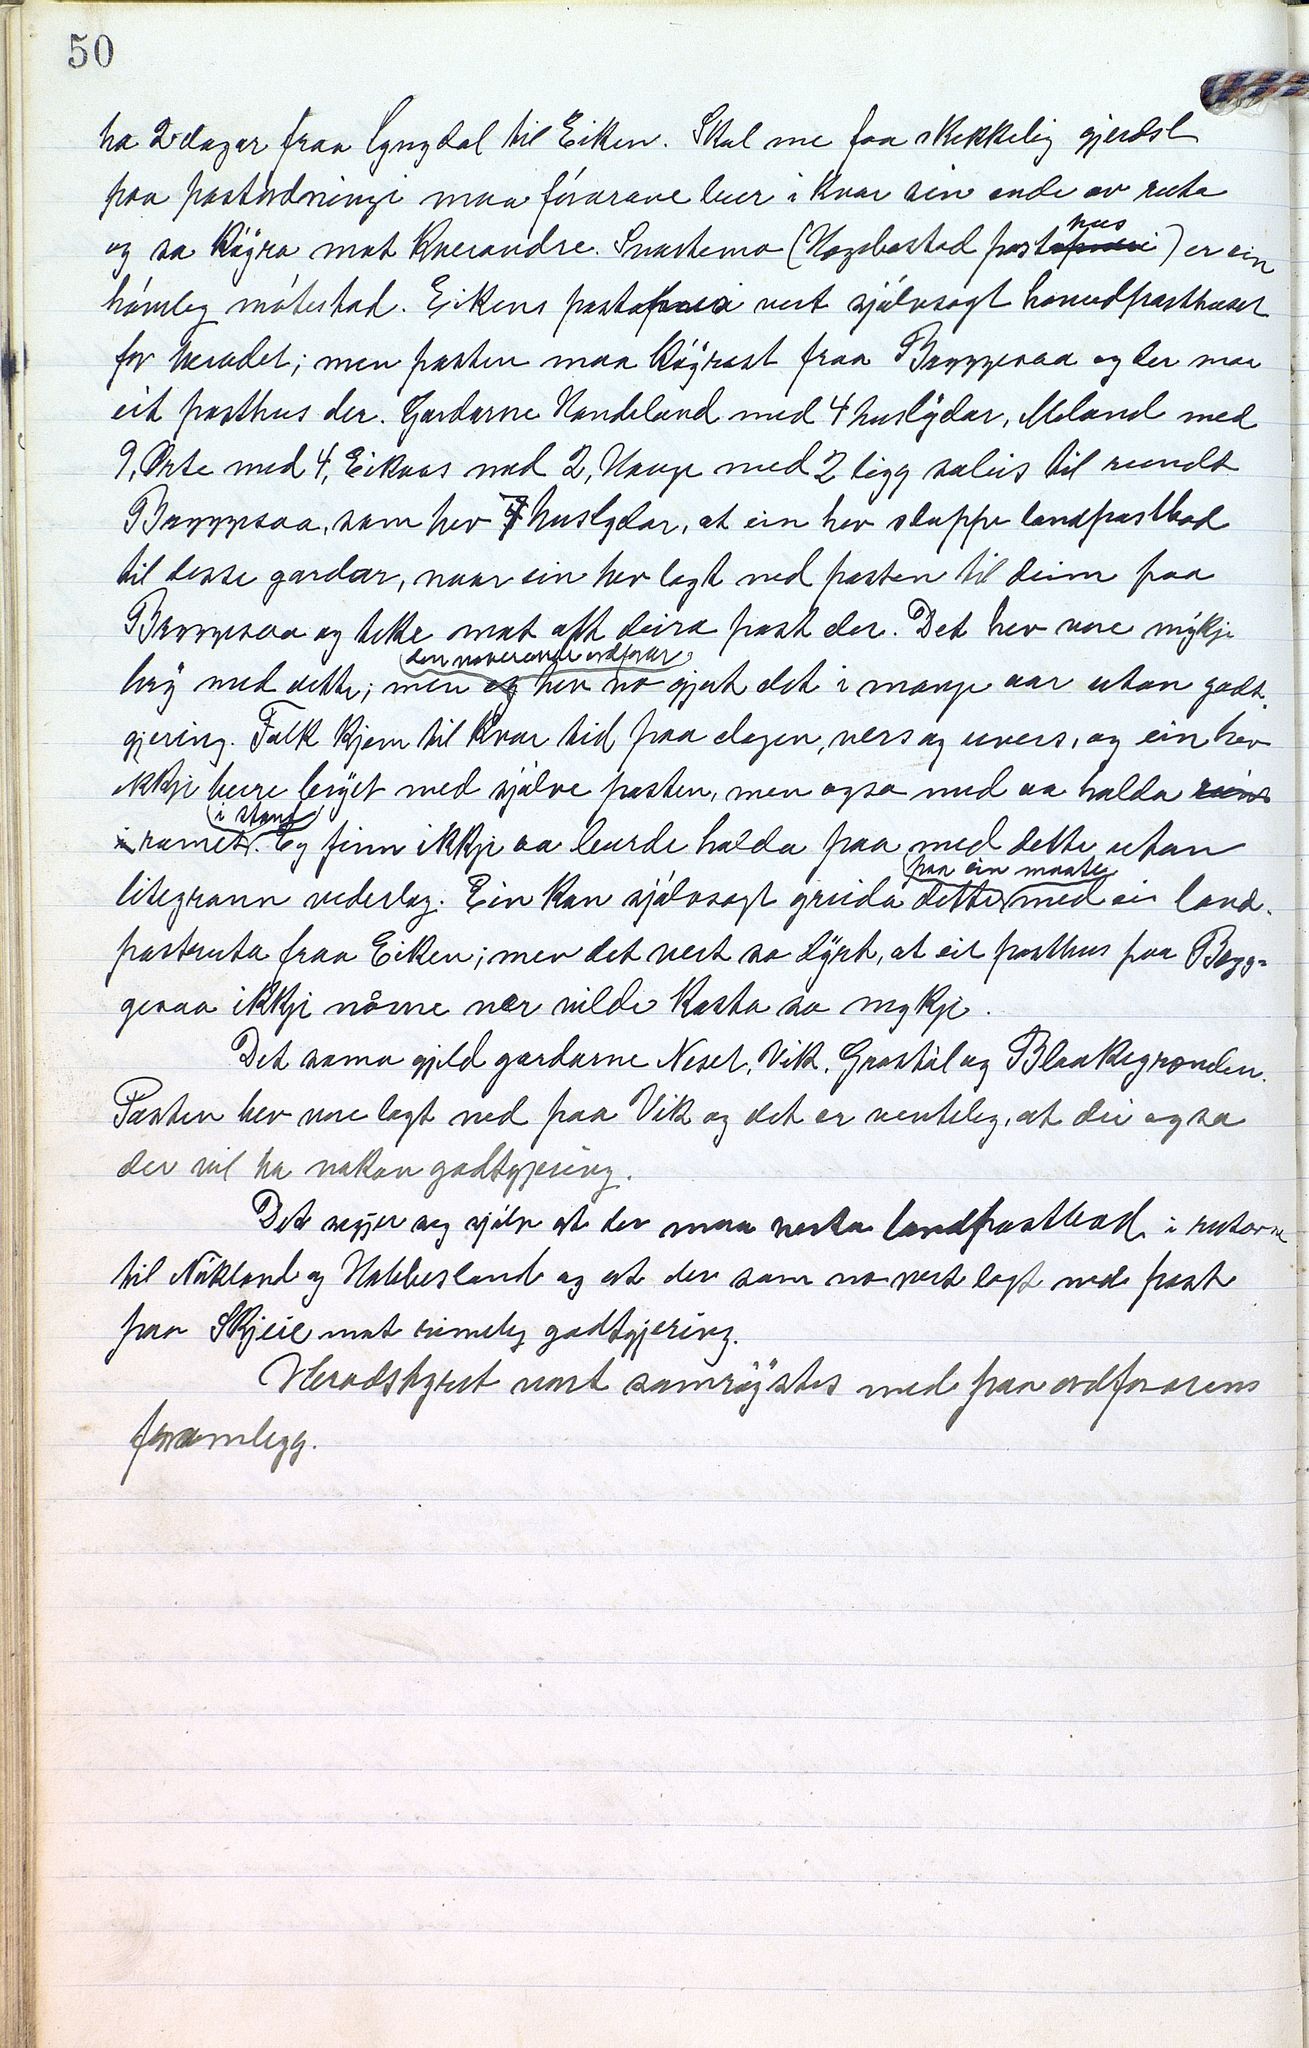 50
ha 2 dagar fraa Lyngdal til Eiken. Skal me faa skikkelig gjerdsl
paa postordningi maa förarane bur i kvar sin ende av ruta
og sa köyra mot kverandre. Snartemo (Hægebostad posthus) er ein
hömleg mötestad. Eikens postopneri vert sjölvsagt hovudposthuset
for heradet; men posten maa köyrast fraa Bryggesaa og der maa
eit posthus der. Gardarne Handeland med 4 huslydar, Mland med
9, Örte med 4, Eikaas med 2, Hauge med 2 ligg soleis til rundt
Bryggesaa, som hev 7 huslydar, at ein hev sloppe landpostbod
til desse gardar, naar ein hev lagt ned posten til deim paa
Bryggesaa og teke mot alt deira post der. Det hev vore mykje
bry med dette; men den noverande ordförar hev no gjort det i mange aar utan godt-
gjering. Folk kjem til kvar tid paa dagen, vers og uvers, og ein hev
ikkje berre bryet med sjölve posten, men ogso med aa halda
romet i stand. Eg finn ikkje aa burde halda paa med dette utan
litegrann vederlag. Ein kan sjölvsagt greida dette paa ein maate med ei land-
postruta fraa Eiken; men det vert so dyrt, at eit posthus paa Bryg-
gesaa ikkje nörne nær vilde kosta so mykje.
Det samo gjeld gardarne Neset, Vik, Grastöl og Blaakegrænden.
Posten hev vore lagt ned paa Vik og det er venteleg, at dei ogsa
der vil ha nokon godtgjering.
Det segjer seg sjölv at der maa verta landpostbod i rutorne
til Nökland og Hobbesland og at der som no vert lagt ned post
paa Skjeie mot rimeleg godtgjering.
Heradstyret vart samröystes med paa ordforarens
framlegg.